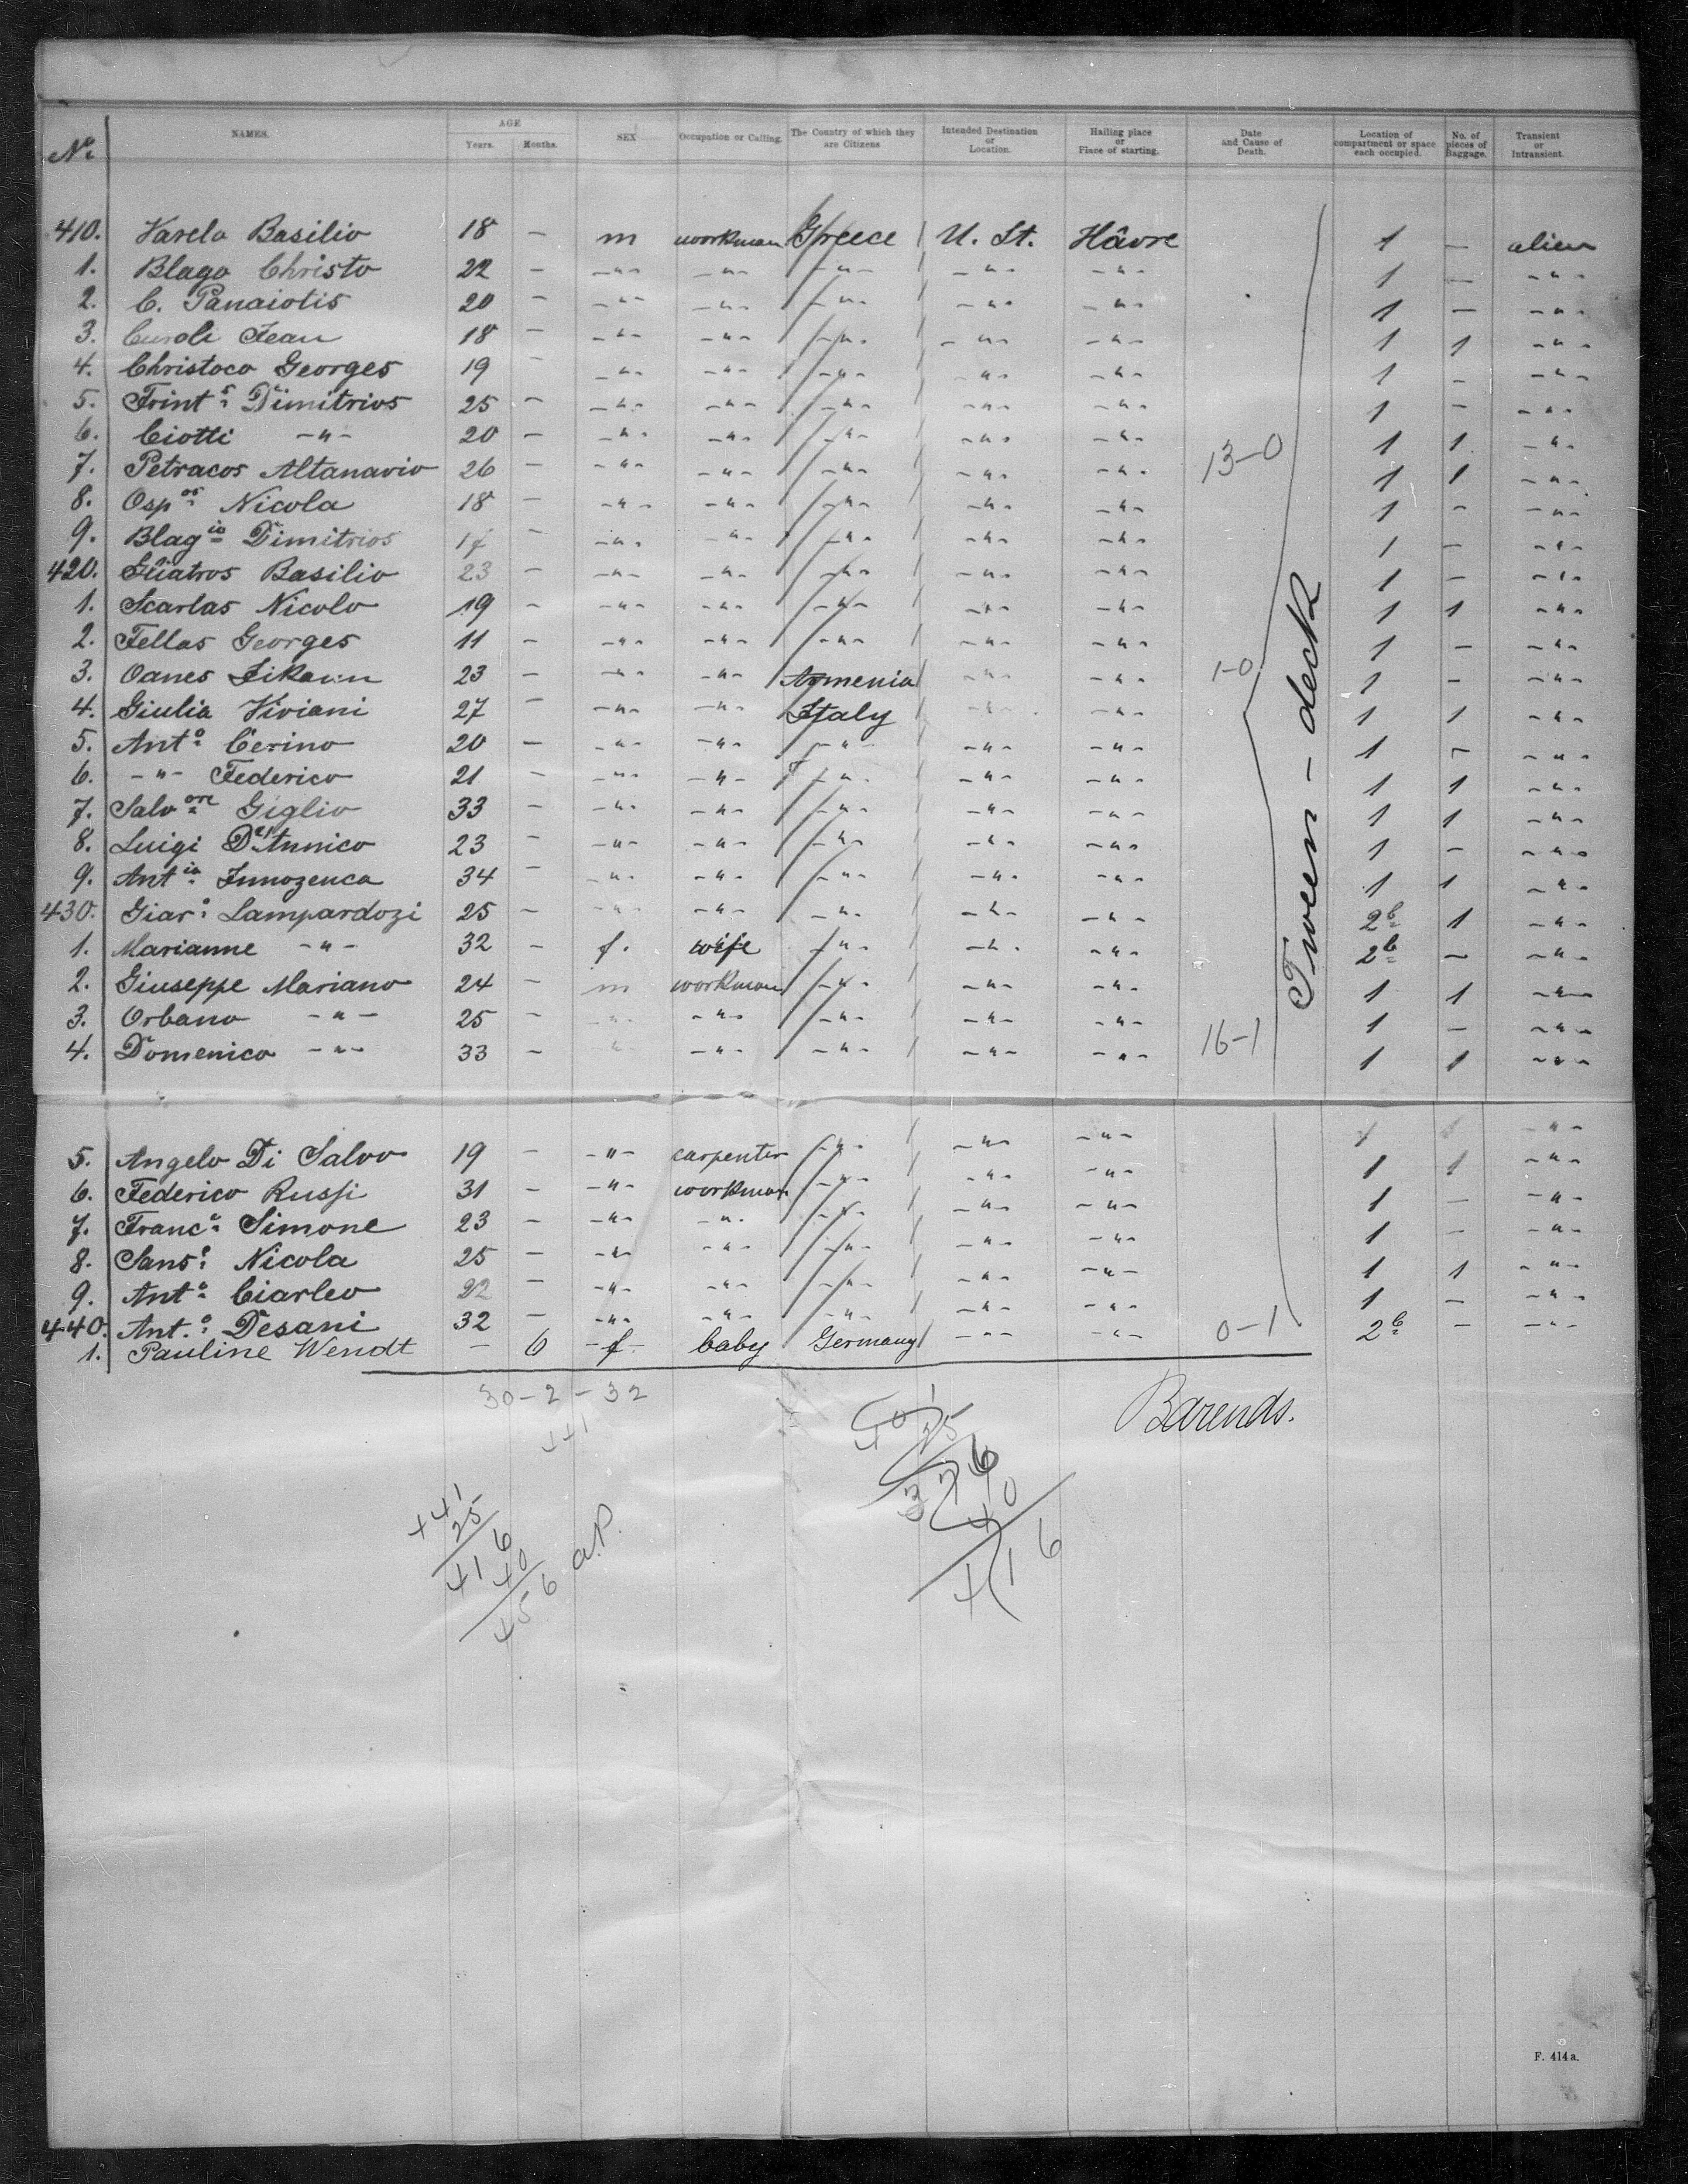 No. NAMES. AGE Years. Months. SEX Occupation or Calling. The Country of which they are Citizens Intended Destination or Location. Hailing place or Place of starting. Date and Cause of Death. Location of compartment or space each occupied. No. of pieces of Baggage. Transient or Intransient.
410. Varela Basilio 18 - m workman Greece U. St. Hâvre 1 - alien
1. Blago Christo 22 - -"- -"- -"- -"- -"- 1 - -"-
2. C. Panaiotis 20 - -"- -"- -"- -"- -"- 1 - -"-
3. Curoli Jean 18 - -"- -"- -"- -"- -"- 1 1 -"-
4. Christoco Georges 19 - -"- -"- -"- -"- -"- 1 - -"-
5. Frint.s Dimitrios 25 - -"- -"- -"- -"- -"- 1 - -"-
6. Ciotti -"- 20 - -"- -"- -"- -"- -"- 1 1 -"-
7. Petracos Altanavio 26 - -"- -"- -"- -"- -"- 13-0 1 1 -"-
8. Osp.os Nicola 18 - -"- -"- -"- -"- -"- 1 - -"-
9. Blag.io Dimitrios 17 - -"- -"- -"- -"- -"- 1 - -"-
420. Güatros Basilio 23 - -"- -"- -"- -"- -"- 1 - -"-
1. Scarlas Nicolo 19 - -"- -"- -"- -"- -"- 1 1 -"-
2. Fellas Georges 11 - -"- -"- -"- -"- -"- 1 - -"-
3. Oanes 23 - -"- -"- Armenia -"- -"- 1-0 1 - -"-
4. Giulia Viviani 27 - -"- -"- Italy -"- -"- 1 1 -"-
5. Ant.o Cerino 20 - -"- -"- -"- -"- -"- 1 - -"-
6. -"- Federico 21 - -"- -"- -"- -"- -"- 1 1 -"-
7. Salv.ore Giglio 33 - -"- -"- -"- -"- -"- 1 1 -"-
8. Luigi D'Annico 23 - -"- -"- -"- -"- -"- 1 - -"-
9. Ant.io Innozenca 34 - -"- -"- -"- -"- -"- 1 1 -"-
430. Giar.o Lampardozi 25 - -"- -"- -"- -"- -"- 2b 1 -"-
1. Marianne -"- 32 - f. wife -"- -"- -"- 2b - -"-
2. Giuseppe Mariano 24 - m workman -"- -"- -"- 1 1 -"-
3. Orbano -"- 25 - -"- -"- -"- -"- -"- 1 - -"-
4. Domenico -"- 33 - " -"- -"- -"- -"- 16-1 1 1 -"-
Tween-deck
5. Angelo Di Salvo 19 - -"- carpenter -"- -"- -"- 1 1 -"-
6. Federico Russi 31 - -"- workman -"- -"- -"- 1 1 -"-
7. Franc.o Simone 23 - -"- -"- -"- -"- -"- 1 - -"-
8. Sans.o Nicola 25 - -"- -"- -"- -"- -"- 1 - -"-
9. Ant.o Ciarleo 22 - -"- -"- -"- -"- -"- 1 1 -"-
440. Ant.o Desani 32 - -"- -"- -"- -"- -"- 1 - -"-
1. Pauline Wendt - 6 f baby Germany -"- -"- 0-1 2b - -"-
30-2-32
441
Barends.
441
25
416
40
456 a.P.
401
25
376
40
416
F. 414 a.